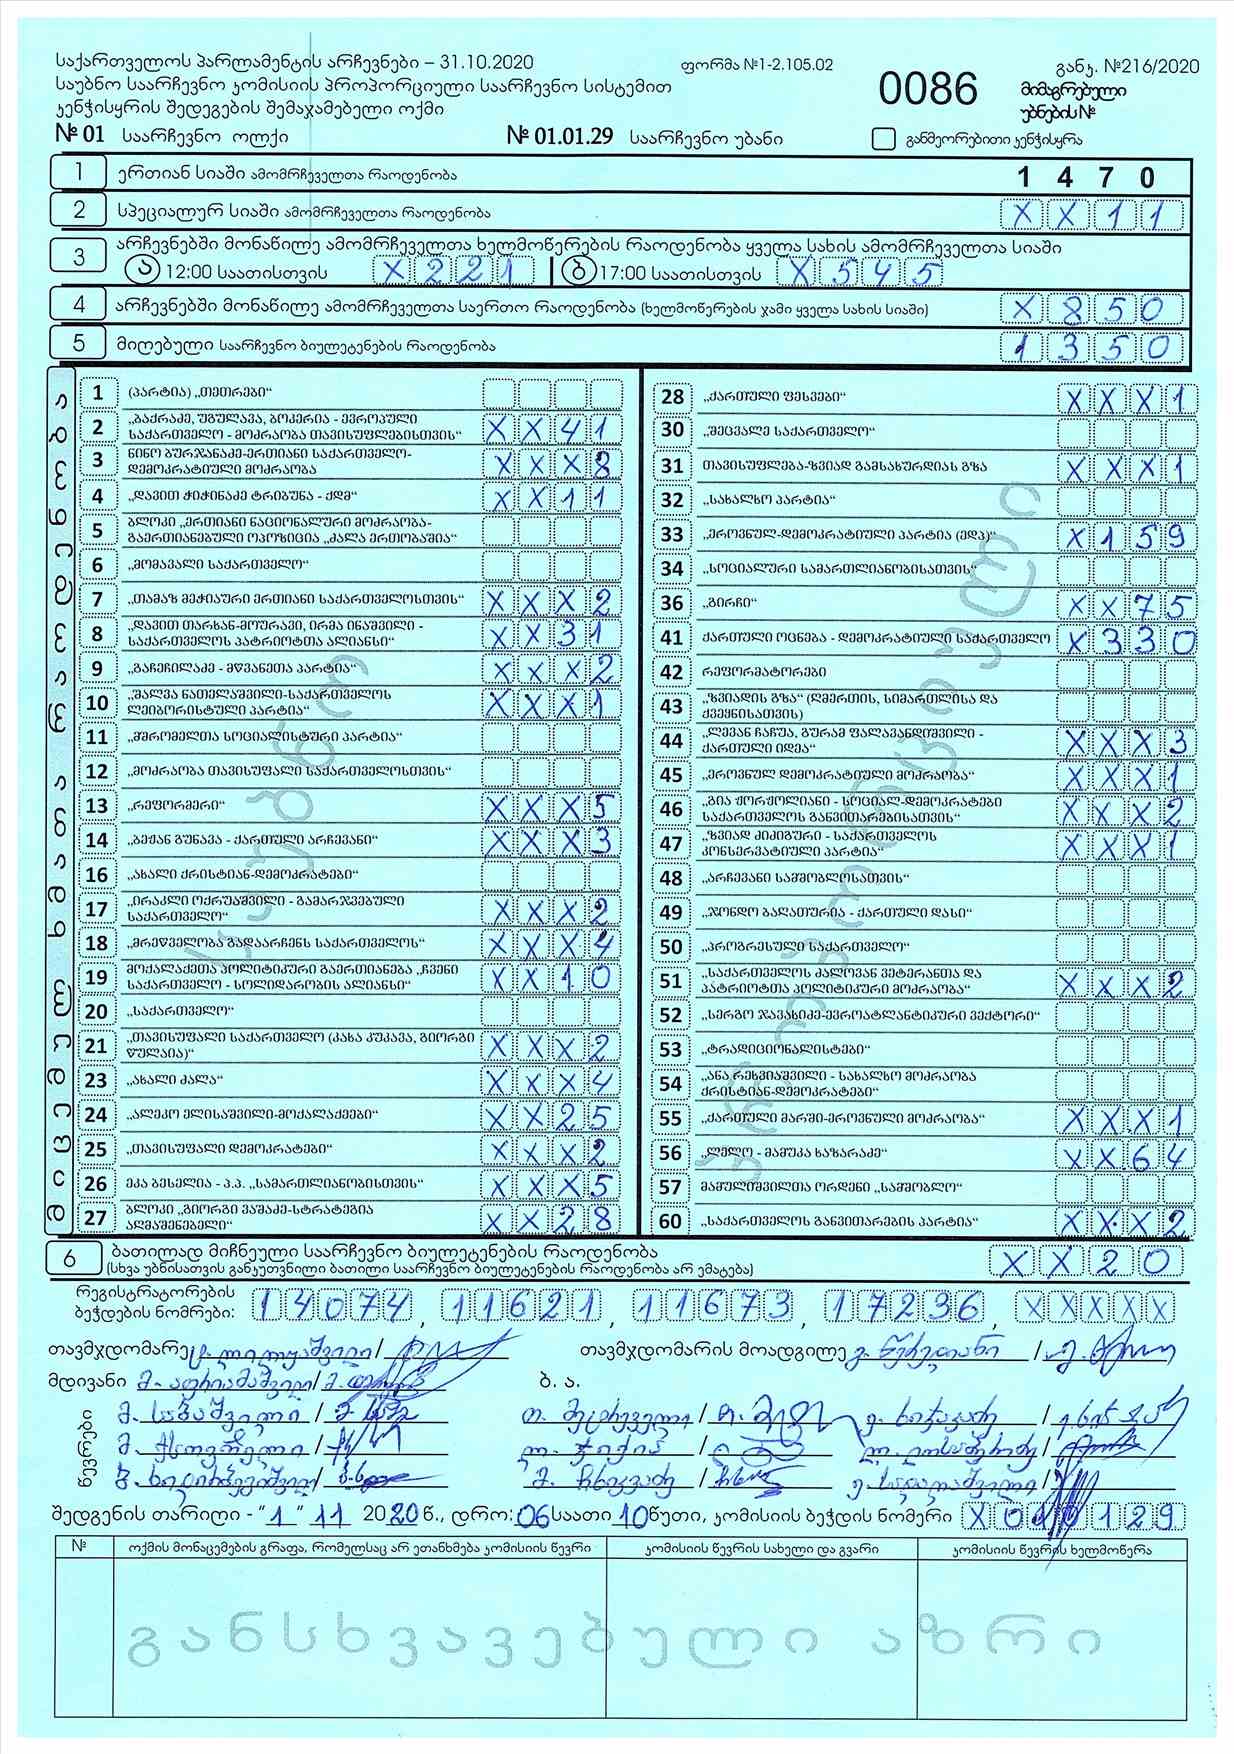 საქართველოს პარლამენტის არჩევნები – 31.10.2020
ფორმა №1-2.105.02
განკ. №216/2020
საუბნო საარჩევნო კომისიის პროპორციული საარჩევნო სისტემით
კენჭისყრის შედეგების შემაჯამებელი ოქმი
0086
მიმაგრებული
უბნების №
№ 01 საარჩევნო ოლქი
№ 01.01.29 საარჩევნო უბანი
განმეორებითი კენჭისყრა
1 ერთიან სიაში ამომრჩეველთა რაოდენობა 1470
2 სპეციალურ სიაში ამომრჩეველთა რაოდენობა XX11
3 არჩევნებში მონაწილე ამომრჩეველთა ხელმოწერების რაოდენობა ყველა სახის ამომრჩეველთა სიაში
ა 12:00 საათისთვის X221 ბ 17:00 საათისთვის X545
4 არჩევნებში მონაწილე ამომრჩეველთა საერთო რაოდენობა (ხელმოწერების ჯამი ყველა სახის სიაში) X850
5 მიღებული საარჩევნო ბიულეტენების რაოდენობა 1350
1 (პარტია) „თეთრები“
2 „ბაქრაძე, უგულავა, ბოკერია - ევროპული
საქართველო - მოძრაობა თავისუფლებისთვის“ XX41
3 ნინო ბურჯანაძე-ერთიანი საქართველო-
დემოკრატიული მოძრაობა XXX8
4 „დავით ჭიჭინაძე ტრიბუნა - ქდმ“ XX11
5 ბლოკი „ერთიანი ნაციონალური მოძრაობა-
გაერთიანებული ოპოზიცია „ძალა ერთობაშია“
6 „მომავალი საქართველო“
7 „თამაზ მეჭიაური ერთიანი საქართველოსთვის“ XXX2
8 „დავით თარხან-მოურავი, ირმა ინაშვილი -
საქართველოს პატრიოტთა ალიანსი“ XX31
9 „გაჩეჩილაძე - მწვანეთა პარტია“ XXX2
10 „შალვა ნათელაშვილი-საქართველოს
ლეიბორისტული პარტია“ XXX1
11 „მშრომელთა სოციალისტური პარტია“
12 „მოძრაობა თავისუფალი საქართველოსთვის“
13 „რეფორმერი“ XXX5
14 „ბეჟან გუნავა - ქართული არჩევანი“ XXX3
16 „ახალი ქრისტიან-დემოკრატები“
17 „ირაკლი ოქრუაშვილი - გამარჯვებული
საქართველო“ XXX2
18 „მრეწველობა გადაარჩენს საქართველოს“ XXX4
19 მოქალაქეთა პოლიტიკური გაერთიანება „ჩვენი
საქართველო - სოლიდარობის ალიანსი“ XX10
20 „საქართველო“
21 „თავისუფალი საქართველო (კახა კუკავა, გიორგი
წულაია)“ XXX2
23 „ახალი ძალა“ XXX4
24 „ალეკო ელისაშვილი-მოქალაქეები“ XX25
25 „თავისუფალი დემოკრატები“ XXX2
26 ეკა ბესელია - პ.პ. „სამართლიანობისთვის“ XXX5
27 ბლოკი „გიორგი ვაშაძე-სტრატეგია
აღმაშენებელი“ XX28
28 „ქართული ფესვები“ XXX1
30 „შეცვალე საქართველო“
31 თავისუფლება-ზვიად გამსახურდიას გზა XXX1
32 „სახალხო პარტია“
33 „ეროვნულ-დემოკრატიული პარტია (ედპ)“ X159
34 „სოციალური სამართლიანობისათვის“
36 „გირჩი“ XX75
41 ქართული ოცნება - დემოკრატიული საქართველო X330
42 რეფორმატორები
43 „ზვიადის გზა“ (ღმერთის, სიმართლისა და
ქვეყნისათვის)
44 „ლევან ჩაჩუა, გურამ ფალავანდიშვილი -
ქართული იდეა“ XXX3
45 „ეროვნულ დემოკრატიული მოძრაობა“ XXX1
46 „გია ჟორჟოლიანი - სოციალ-დემოკრატები
საქართველოს განვითარებისათვის“ XXX2
47 „ზვიად ძიძიგური - საქართველოს
კონსერვატიული პარტია“ XXX1
48 „არჩევანი სამშობლოსათვის“
49 „ჯონდო ბაღათურია - ქართული დასი“
50 „პროგრესული საქართველო“
51 „საქართველოს ძალოვან ვეტერანთა და
პატრიოტთა პოლიტიკური მოძრაობა“ XXX2
52 „სერგო ჯავახიძე-ევროატლანტიკური ვექტორი“
53 „ტრადიციონალისტები“
54 „ანა რეხვიაშვილი - სახალხო მოძრაობა
ქრისტიან-დემოკრატები“
55 „ქართული მარში-ეროვნული მოძრაობა“ XXX1
56 „ლელო - მამუკა ხაზარაძე“ XX64
57 მამულიშვილთა ორდენი „სამშობლო“
60 „საქართველოს განვითარების პარტია“ XXX2
საუბნო
პროპორციული
6 ბათილად მიჩნეული საარჩევნო ბიულეტენების რაოდენობა XX20
(სხვა უბნისათვის განკუთვნილი ბათილი საარჩევნო ბიულეტენების რაოდენობა არ ემატება)
რეგისტრატორების
ბეჭდების ნომრები: 14074, 11621, 11673, 17236, XXXXX
თავმჯდომარე / თავმჯდომარის მოადგილე /
მდივანი / ბ. ა.
წევრები მ. საბაშვილი /
შედგენის თარიღი - “1” 11 2020 წ., დრო: 06 საათი 10 წუთი, კომისიის ბეჭდის ნომერი X010129
№ ოქმის მონაცემების გრაფა, რომელსაც არ ეთანხმება კომისიის წევრი კომისიის წევრის სახელი და გვარი კომისიის წევრის ხელმოწერა
განსხვავებული აზრი